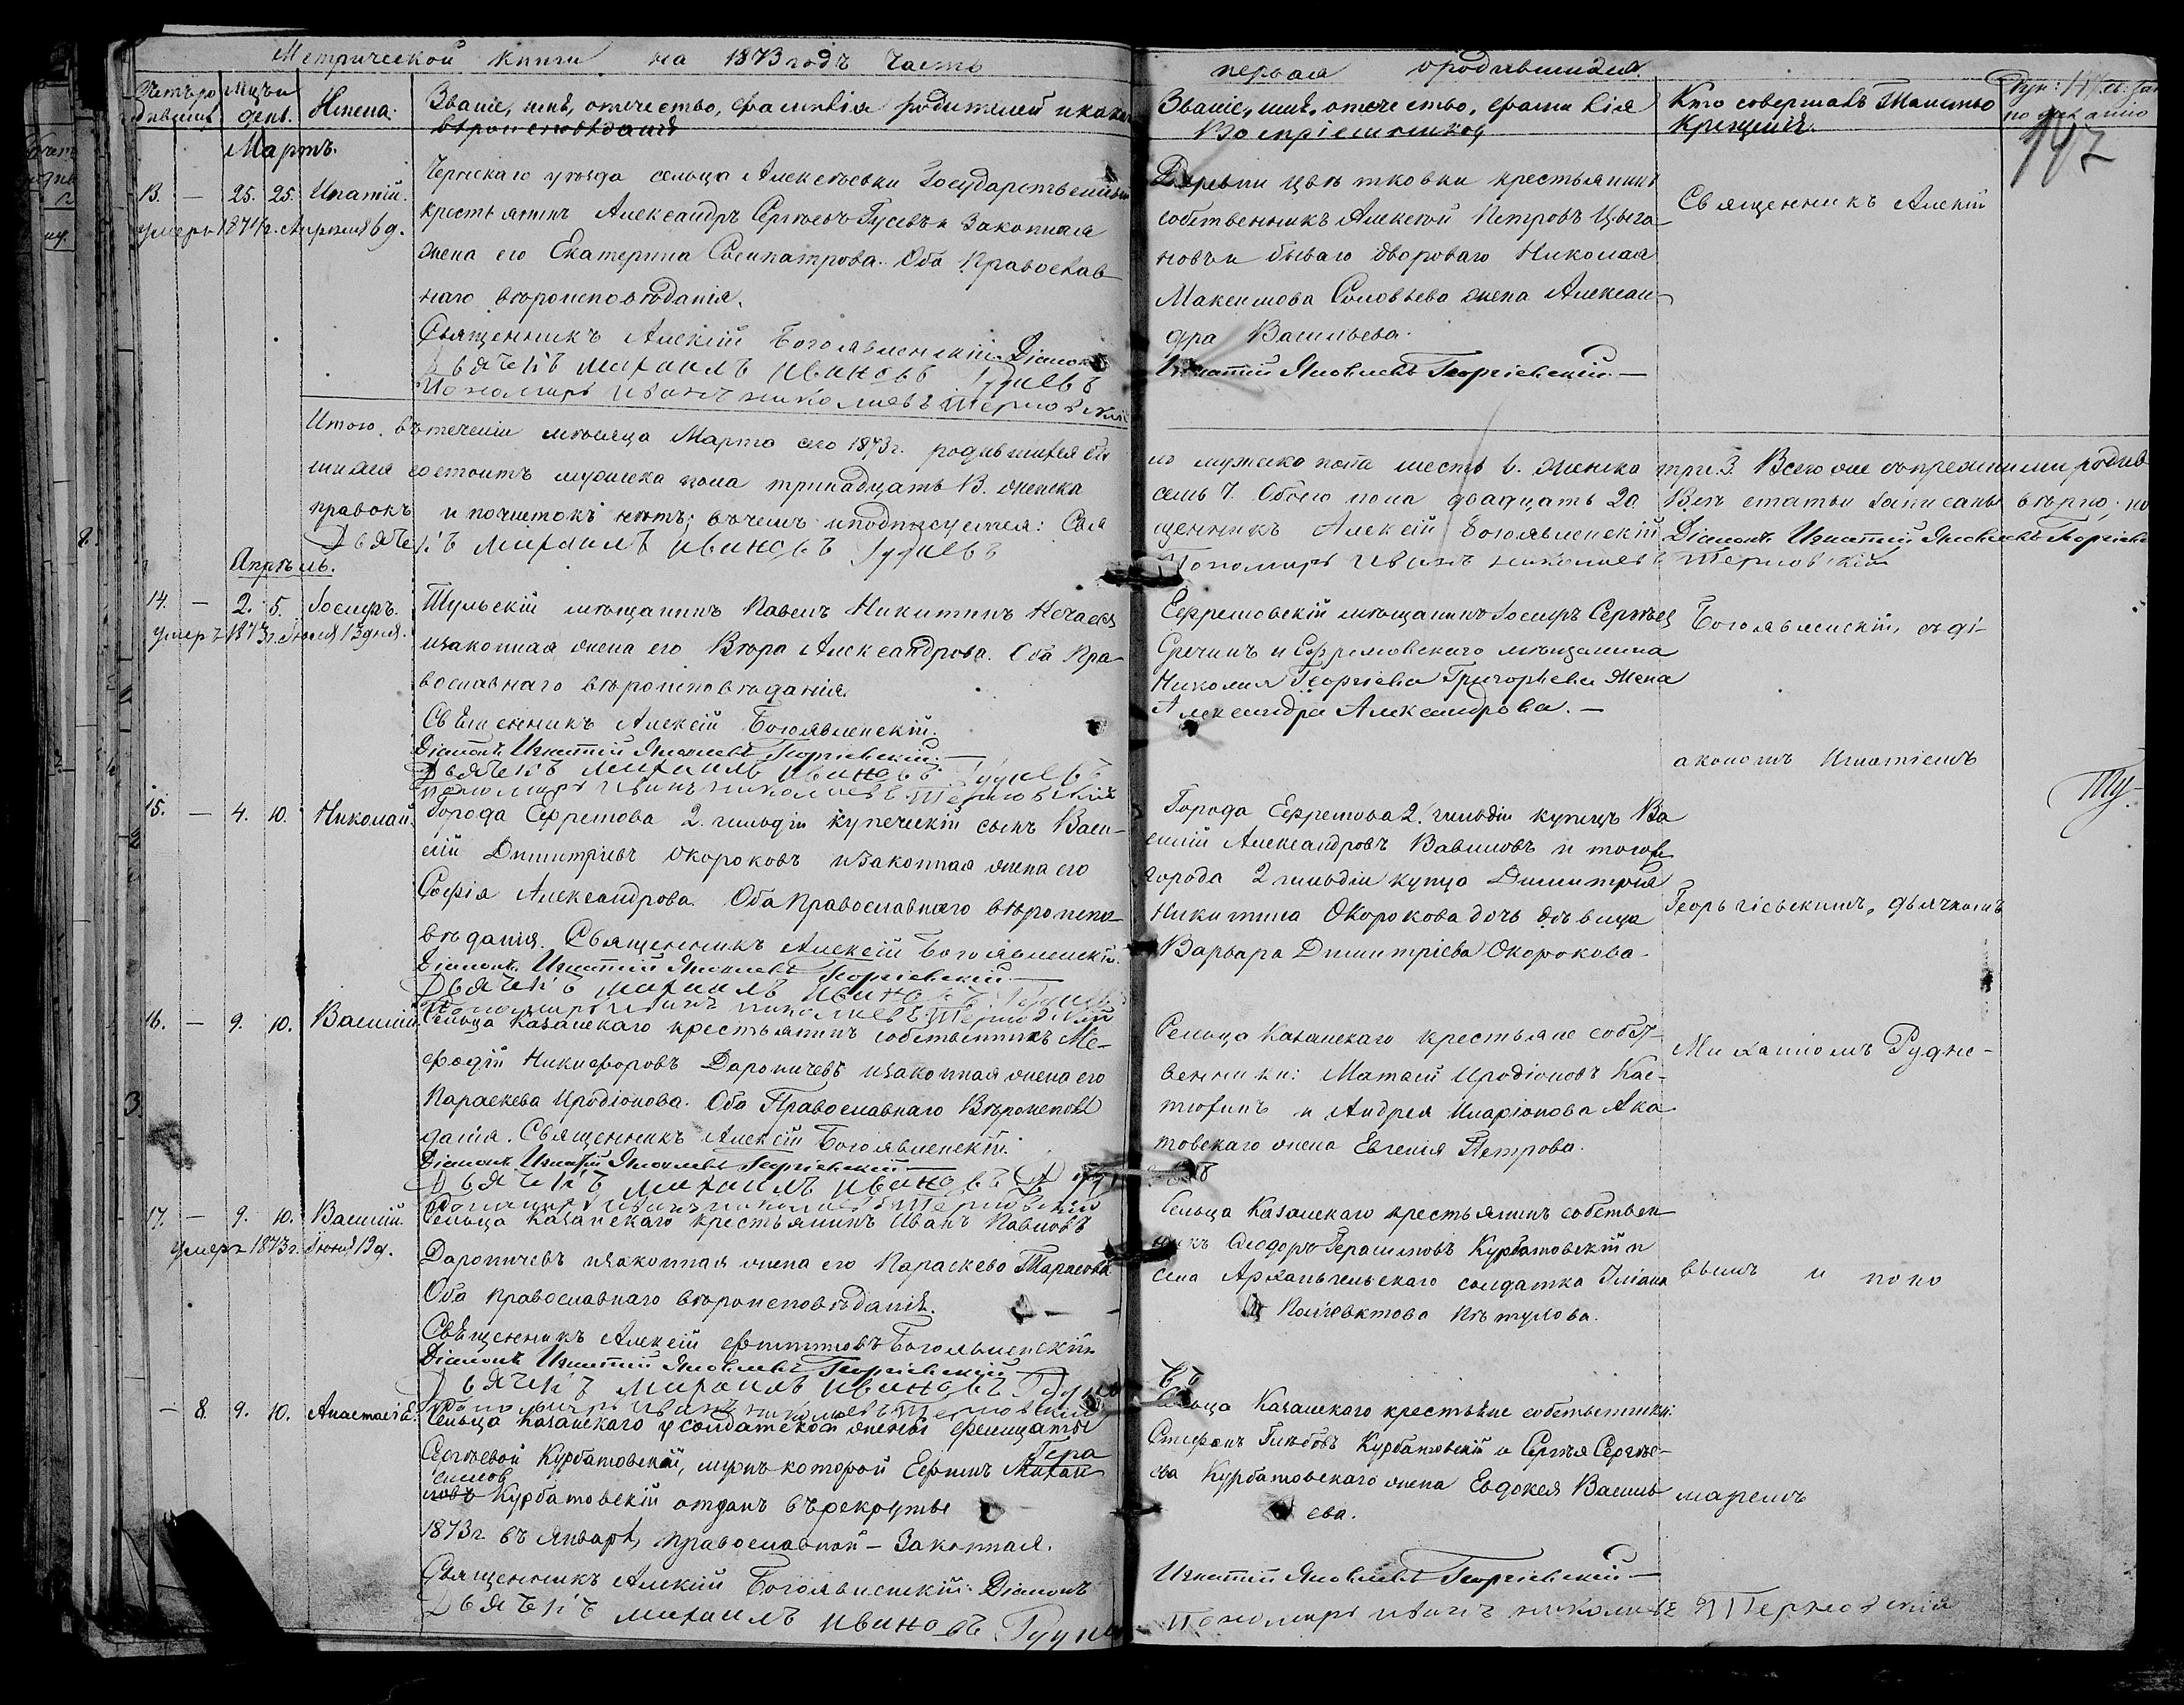 Метрической книги на 1873 годъ Часть
первая о родившихся.
Счетъ родившихся
Мѣсяцъ и день.
Имена.
Званіе, имя, отчество, фамилія родителей и какого
вѣроисповѣданія
Званіе, имя, отчество, фамилія
Воспріемниковъ
Кто совершалъ Таинство
Крещенія.
147
Мартъ.
13. — 25. 25. Ипатій.
умеръ 1874 г. Апрѣля 6 д.
Чернскаго уѣзда сельца Алексѣевки Государственный
крестьянинъ Александръ Сергѣевъ Гусевъ и Законная
жена его Екатерина Сосипатрова. Оба Православ-
наго вѣроисповѣданія.
Священникъ Алексій Богоявленскій. Діаконъ
Дьячекъ михаилъ ивановъ Рудневъ
Пономарь Иванъ николаевъ Терновскій
Деревни Цвѣтковки крестьянинъ
собственникъ Алексѣй Петровъ Цыга-
новъ и бывшаго двороваго Николая
Максимова Соловьева жена Алексан-
дра Васильева.
Игнатій Яковлевъ Георгіевскій. —
Священникъ Алексій
Итого въ теченіи мѣсяца Марта сего 1873 г. родившихся
мужеска пола шесть 6. женска три. 3. Всего же съ прежними родив
шимися состоитъ мужеска пола тринадцать 13. женска
семь 7. Обоего пола двадцать 20. Всѣ статьи записаны вѣрно; по
правокъ и почистокъ нѣтъ; въ чемъ и подписуемся: Свя
щенникъ Алексѣй Богоявленскій. Діаконъ Игнатій Яковлевъ Георгіевскій
Дьячекъ михаилъ ивановъ Рудневъ
Пономарь Иванъ николаевъ Терновскій
Апрѣль.
14. — 2. 5. Іосифъ.
умеръ 1873 г. Іюля 13 дня.
Тульскій мѣщанинъ Павелъ Никитинъ Нечаевъ
и законная жена его Вѣра Александрова. Оба Пра-
вославнаго вѣроисповѣданія.
Священникъ Алексій Богоявленскій.
Діаконъ Игнатій Яковлевъ Георгіевскій. —
Дьячекъ михаилъ ивановъ Рудневъ
Пономарь Иванъ николаевъ Терновскій
Ефремовскій мѣщанинъ Іосифъ Сергѣевъ
Гречинъ и Ефремовскаго мѣщанина
Николая Георгіева Григорьева жена
Александра Александрова. —
Богоявленскій, съ ді-
акономъ Игнатіемъ
15. — 4. 10. Николай.
Города Ефремова 2. гильдіи купеческій сынъ Васи-
лій Димитріевъ Окороковъ и законная жена его
Софія Александрова. Оба Православнаго вѣроиспо-
вѣданія. Священникъ Алексій Богоявленскій.
Діаконъ Игнатій Яковлевъ Георгіевскій —
Дьячекъ михаилъ ивановъ Рудневъ
Пономарь Иванъ николаевъ Терновскій
Города Ефремова 2. гильдіи купецъ Ва
силій Александровъ Вавиловъ и того же
города 2 гильдіи купца Димитрія
Никитина Окорокова дочь дѣвица
Варвара Димитріева Окорокова.
Георьгіевскимъ, дьячкомъ
16. — 9. 10. Василій
Сельца Казанскаго крестьянинъ собственникъ Ме-
фодій Никифоровъ Дароничевъ и законная жена его
Параскева Иродіонова. Оба Православнаго Вѣроисповѣ
данія. Священникъ Алексій Богоявленскій.
Діаконъ Игнатій Яковлевъ Георгіевскій —
Дьячекъ михаилъ ивановъ
Пономарь Иванъ николаевъ Терновскій
Сельца Казанскаго крестьяне собст-
венники: Матвей Иродіоновъ Кас-
тюхинъ и Андрея Иларіонова Ака
товскаго жена Евгенія Петрова.
Михаиломъ Рудне-
17. — 9. 10. Василій.
умеръ 1873 г. Іюня 13 д.
Сельца Казанскаго крестьянинъ Иванъ Павловъ
Дароничевъ и законная жена его Параскева Тарасова
Оба православнаго вѣроисповѣданія.
Священникъ Алексій Филипповъ Богоявленскій
Діаконъ Игнатій Яковлевъ Георгіевскій —
Дьячекъ михаилъ ивановъ Рудневъ
Пономарь Иванъ николаевъ Терновскій
Сельца Казанскаго крестьянинъ собствен
никъ Ѳеодоръ Герасимовъ Курбатовскій и
села Архангельскаго солдатка Іуліана
Полуевктова Пѣтухова.
вымъ и поно
— 8. 9. 10. Анастасія.
Сельца Казанскаго у солдатской жены Фелицаты
Сергѣевой Курбатовской, мужъ которой Ефимъ Михай Гера
ловъ симов Курбатовскій отданъ въ рекрутье
1873 г. въ Январѣ, православной — Законная.
Священникъ Алексій Богоявленскій. Діаконъ
Дьячекъ михаилъ ивановъ Рудневъ
Сельца Казанскаго крестьяне собственники:
Стефанъ Глѣбовъ Курбатовскій и Сергѣя Сергѣе-
ва Курбатовскаго жена Евдокея Василь
ева.
Игнатій Яковлевъ Георгіевскій —
Пономарь Иванъ николаевъ Терновскій
маремъ